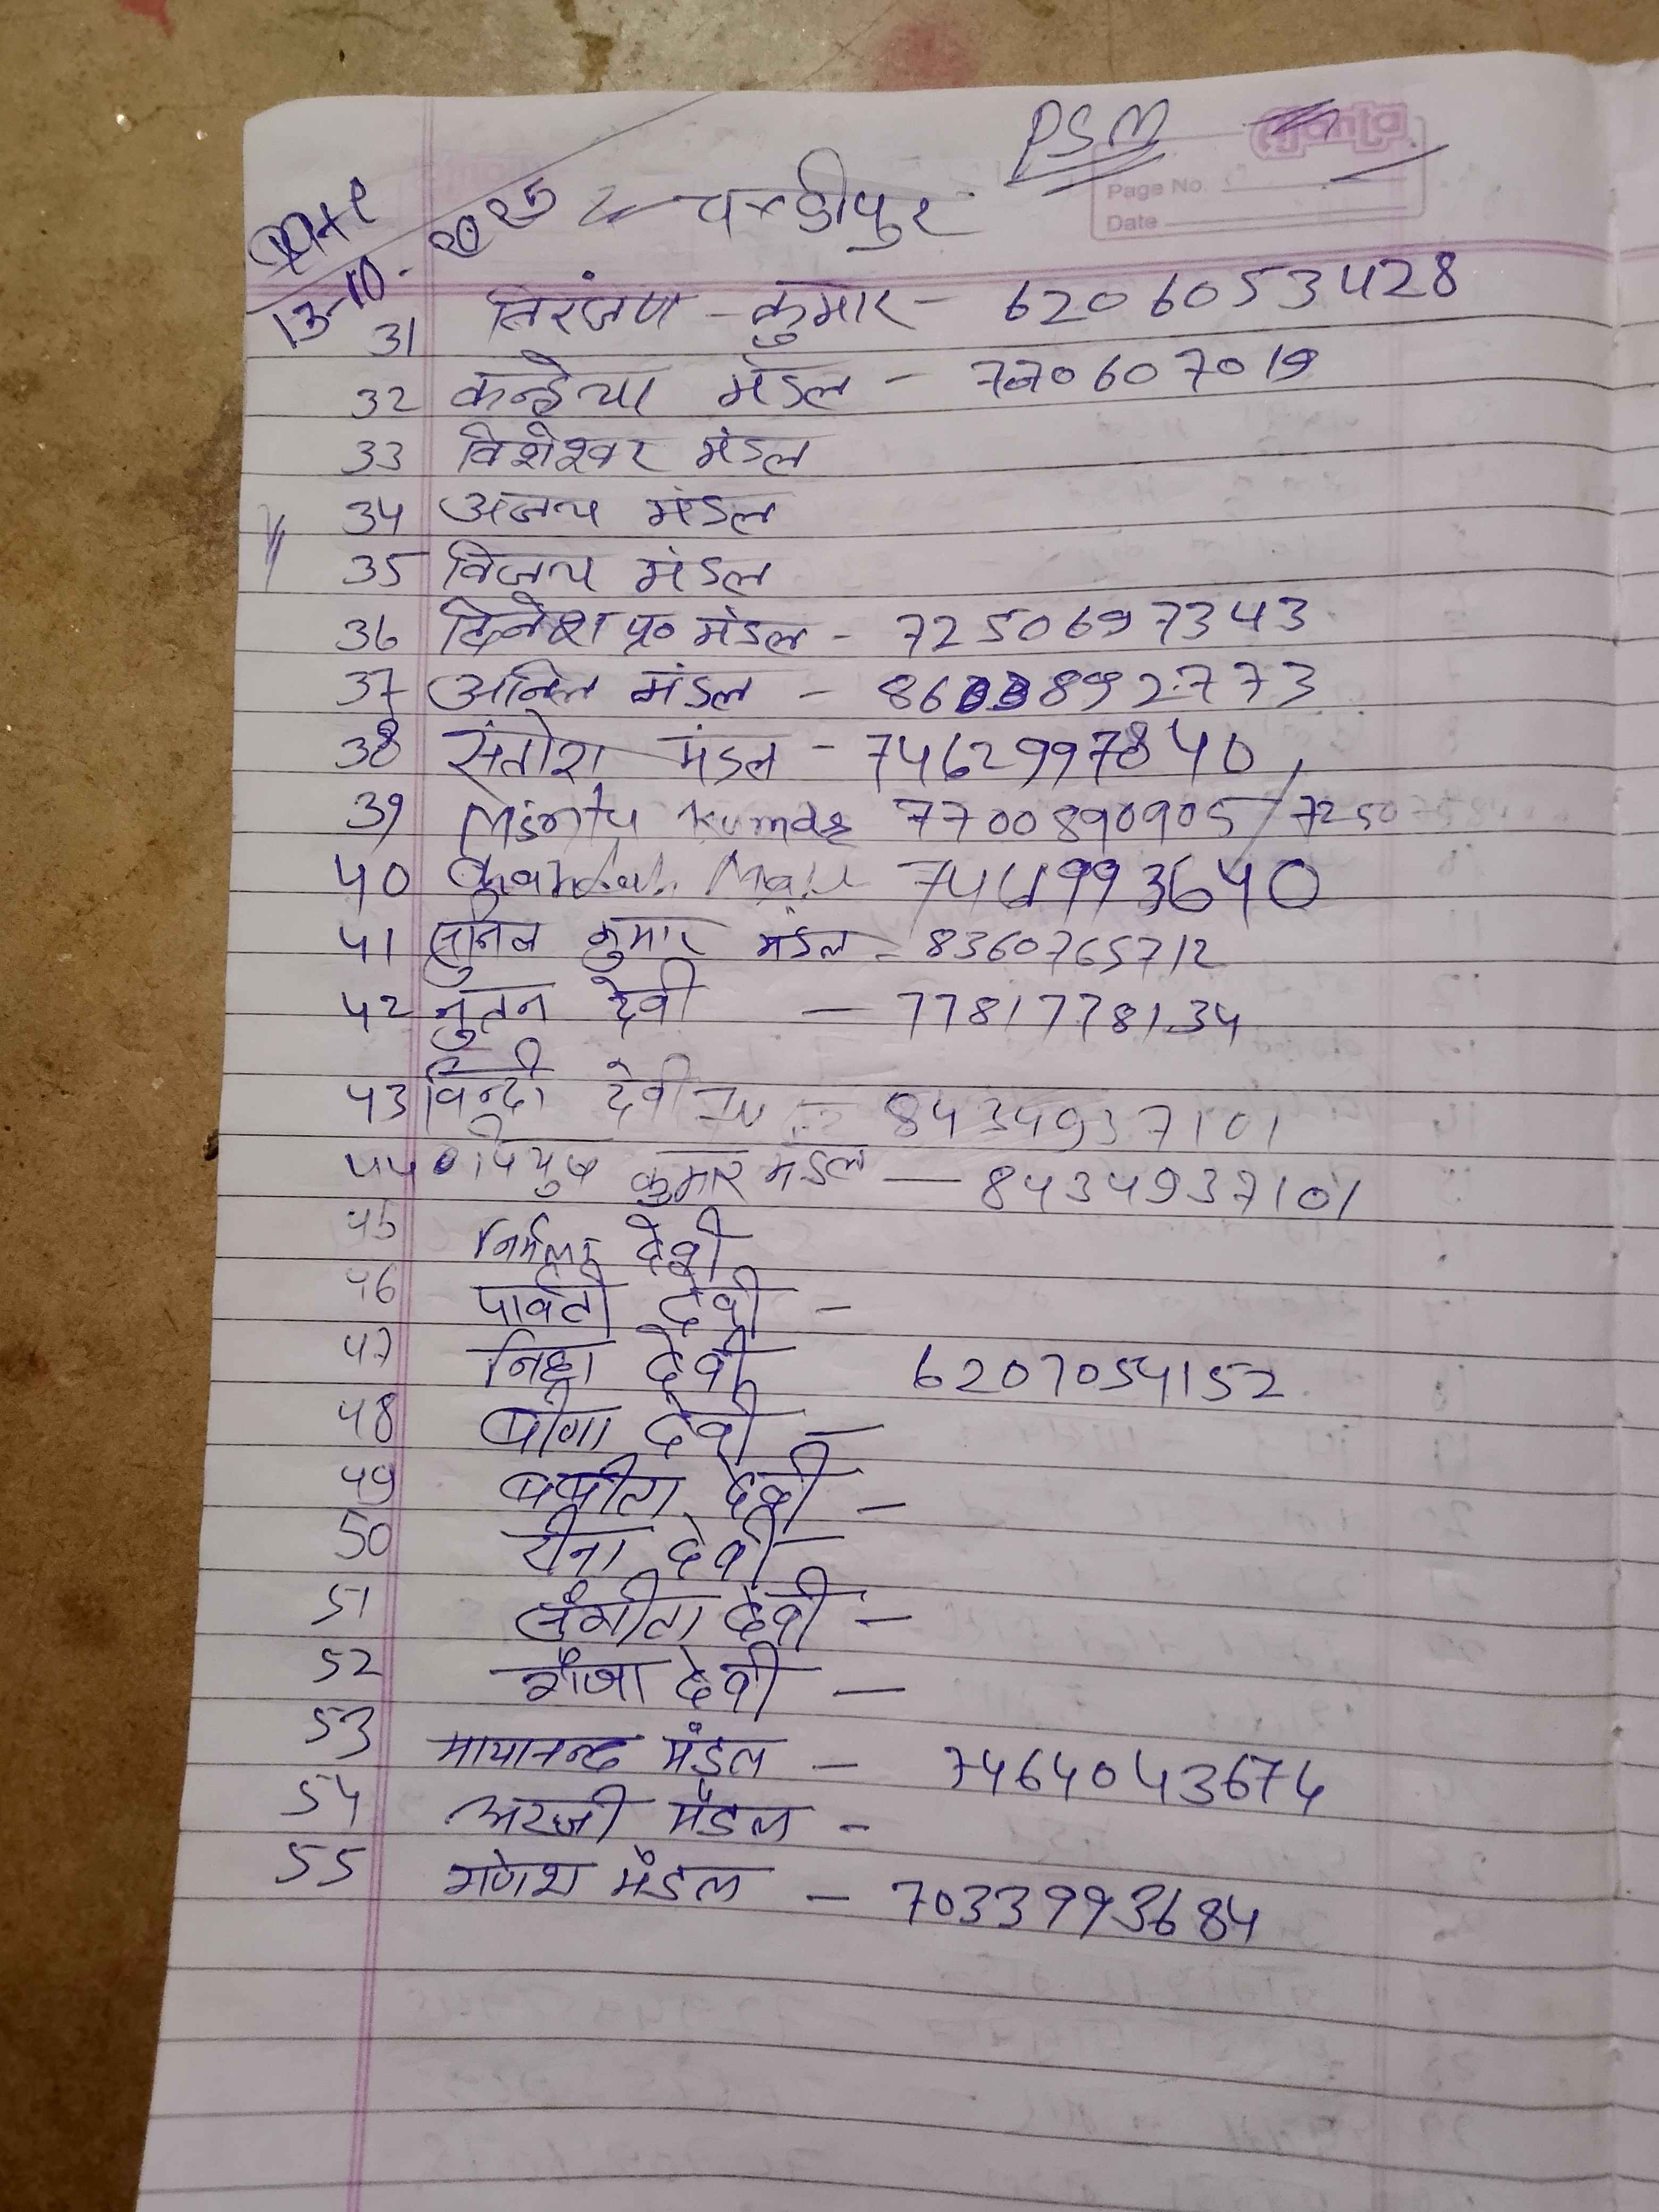 PSM
Page No.
Date
Date
13-10-2025
चन्डीपुर
31 निरंजण - कुमार - 6206053428
32 कन्हैया मंडल - 770607019
33 विशेश्वर मंडल
34 अजय मंडल
35 विजय मंडल
36 दिनेश प्र० मंडल - 7250697343
37 अनिल मंडल - 8633892773
38 संतोश मंडल - 7462997840
39 Kumar 7700890905 / 7250
40 7461993640
41 सुनिल कुमार मंडल = 8360765712
42 नुतन देवी - 7781778134
43 विन्दी देवी - 8434937101
44 पियुष कुमार मंडल - 8434937101
45 देवी
46 पार्वती देवी -
47 देवी 6207054152
48 देवी -
49 बबीता देवी -
50 रीना देवी -
51 संगीता देवी -
52 देवी -
53 मायानन्द मंडल - 7464043674
54 मंडल -
55 गणेश मंडल - 7033993684